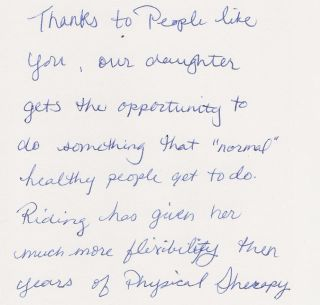 Thanks to People like
You, our daughter
gets the opportunity to
do something that "normal"
healthy people get to do.
Riding has given her
much more flexibility then
years of Physical Therapy